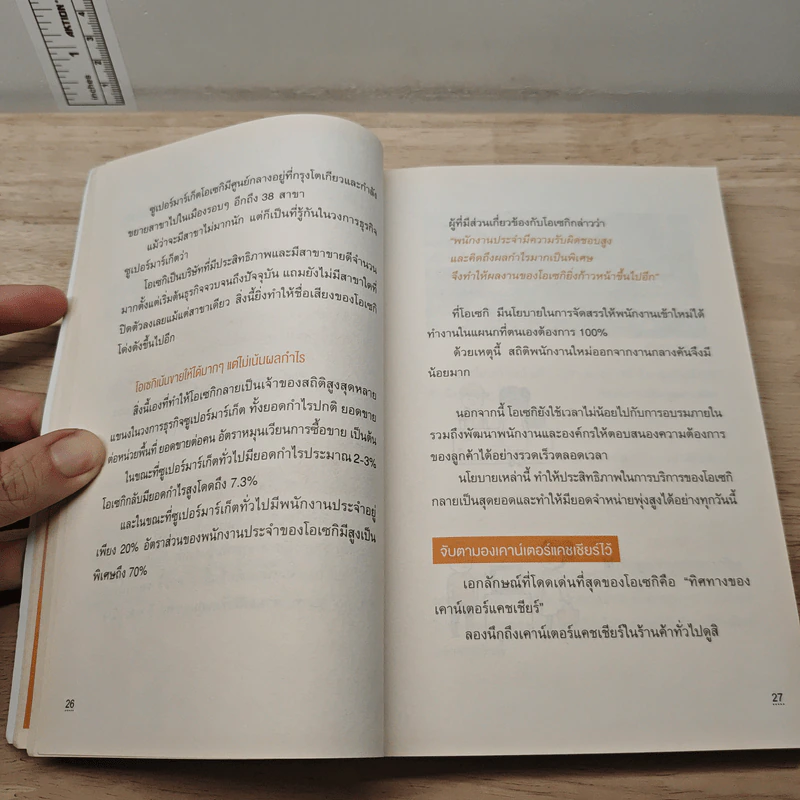 ซูเปอร์มาร์เก็ตโอเซกิมีศูนย์กลางอยู่ที่กรุงโตเกียวและกำลัง
ขยายสาขาไปในเมืองรอบๆ อีกถึง 38 สาขา
แม้ว่าจะมีสาขาไม่มากนัก แต่ก็เป็นที่รู้กันในวงการธุรกิจ
ซูเปอร์มาร์เก็ตว่า
โอเซกิเป็นบริษัทที่มีประสิทธิภาพและมีสาขาขายดีจำนวน
มากตั้งแต่เริ่มต้นธุรกิจจวบจนถึงปัจจุบัน แถมยังไม่มีสาขาใดที่
ปิดตัวลงเลยแม้แต่สาขาเดียว สิ่งนี้ยิ่งทำให้ชื่อเสียงของโอเซกิ
โด่งดังขึ้นไปอีก
โอเซกิเน้นขายให้ได้มากๆ แต่ไม่เน้นผลกำไร
สิ่งนี้เองที่ทำให้โอเซกิกลายเป็นเจ้าของสถิติสูงสุดหลาย
แขนงในวงการธุรกิจซูเปอร์มาร์เก็ต ทั้งยอดกำไรปกติ ยอดขาย
ต่อหน่วยพื้นที่ ยอดขายต่อคน อัตราหมุนเวียนการซื้อขาย เป็นต้น
ในขณะที่ซูเปอร์มาร์เก็ตทั่วไปมียอดกำไรประมาณ 2-3%
โอเซกิกลับมียอดกำไรสูงโดดถึง 7.3%
และในขณะที่ซูเปอร์มาร์เก็ตทั่วไปมีพนักงานประจำอยู่
เพียง 20% อัตราส่วนของพนักงานประจำของโอเซกิมีสูงเป็น
พิเศษถึง 70%
26
ผู้ที่มีส่วนเกี่ยวข้องกับโอเซกิกล่าวว่า
"พนักงานประจำมีความรับผิดชอบสูง
และคิดถึงผลกำไรมากเป็นพิเศษ
จึงทำให้ผลงานของโอเซกิยิ่งก้าวหน้าขึ้นไปอีก"
ที่โอเซกิ มีนโยบายในการจัดสรรให้พนักงานเข้าใหม่ได้
ทำงานในแผนกที่ตนเองต้องการ 100%
ด้วยเหตุนี้ สถิติพนักงานใหม่ออกจากงานกลางคันจึงมี
น้อยมาก
นอกจากนี้ โอเซกิยังใช้เวลาไม่น้อยไปกับการอบรมภายใน
รวมถึงพัฒนาพนักงานและองค์กรให้ตอบสนองความต้องการ
ของลูกค้าได้อย่างรวดเร็วตลอดเวลา
นโยบายเหล่านี้ ทำให้ประสิทธิภาพในการบริการของโอเซกิ
กลายเป็นสุดยอดและทำให้มียอดจำหน่ายพุ่งสูงได้อย่างทุกวันนี้
จับตามองเคาน์เตอร์แคชเชียร์ไว้
เอกลักษณ์ที่โดดเด่นที่สุดของโอเซกิคือ "ทิศทางของ
เคาน์เตอร์แคชเชียร์"
ลองนึกถึงเคาน์เตอร์แคชเชียร์ในร้านค้าทั่วไปดูสิ
27
inches 1 2 3 4
AKTION